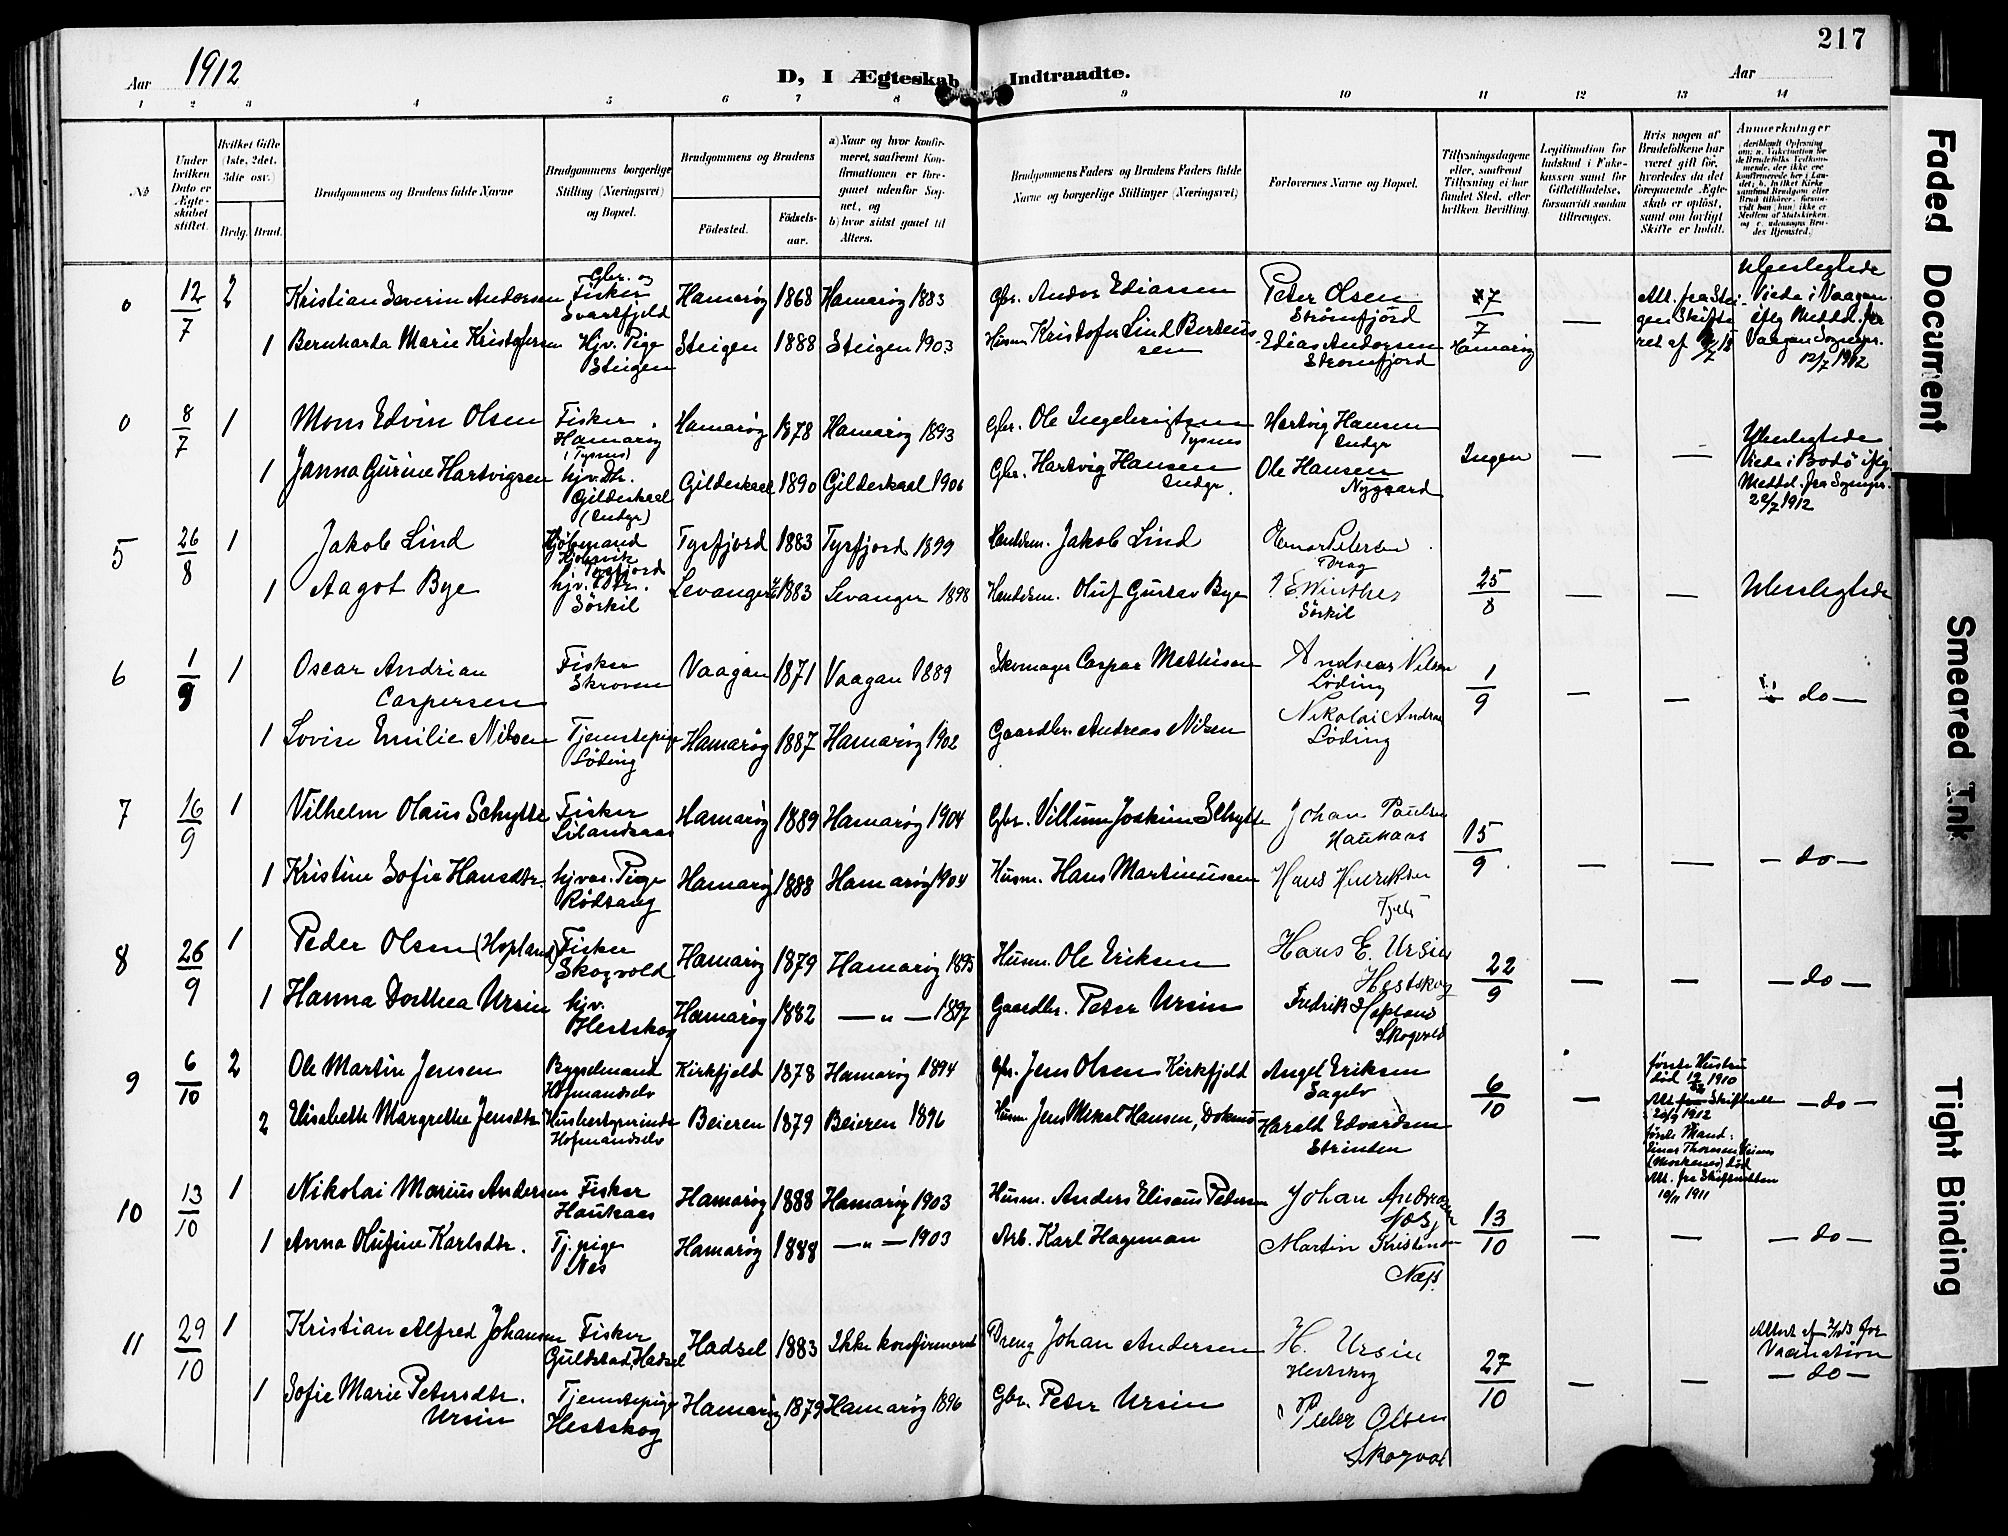 217
Aar 1912
D, I Ægteskab Indtraadte.
Aar
1 2 3 4 5 6 7 8 9 10 11 12 13 14
No
Under hvilken Dato er Ægteskabet stiftet.
Hvilket Gifte (1ste, 2det, 3die osv.)
Brdg. Brud.
Brudgommens og Brudens fulde Navne
Brudgommens borgerlige Stilling (Næringsvei) og Bopæl.
Brudgommens og Brudens
Fødested.
Fødselsaar.
a) Naar og hvor konfirmeret, saafremt Konfirmationen er foregaaet udenfor Sognet, og
b) hvor sidst gaaet til Alters.
Brudgommens Faders og Brudens Faders fulde Navne og borgerlige Stillinger (Næringsvei)
Forlovernes Navne og Bopæl.
Tillysningsdagene eller, saafremt Tillysning ei har fundet Sted, efter hvilken Bevilling.
Legitimation for Indskud i Enkekassen samt for Giftetilladelse, forsaavidt saadan tiltrænges.
Hvis nogen af Brudefolkene har været gift før, hvorledes da det foregaaende Ægteskab er opløst, samt om lovligt Skifte er holdt.
Anmerkninger
0 12/7 2 Kristian Severin Andersen Gbr. og Fisker Svartfjeld Hamarøy 1868 Hamarøy 1883 Gbr. Andor Ediassen Peter Olsen Strømfjord 7/7 Hamarøy — Att. fra Steigen Skifteret af Ubeslegtede Viede i Vaagan iflg Meddel. fra Vaagan Sognepr. 12/7 1912
1 Bernharda Marie Kristofersen Hjv. Pige Steigen Steigen 1888 Steigen 1903 Husm Kristofer Lind Berteussen Edias Andersen Strømfjord
0 8/7 1 Mons Edvin Olsen Fisker Hamarøy (Tysnes) Hamarøy 1878 Hamarøy 1893 Gbr. Ole Ingebrigtsen Tysnes Hartvig Hansen Indyr Ingen — — Ubeslegtede Viede i Bodø iflg Meddl. fra Sognepr. 22/7 1912
1 Janna Gurine Hartvigsen hjv. Dtr. Gildeskaal (Indyr) Gildeskaal 1890 Gildeskaal 1906 Gbr. Hartvig Hansen Indyr. Ole Hansen Nygaard
5 26/8 1 Jakob Lind Kjøbmand Kjøbsvik Tysfjord Tysfjord 1883 Tysfjord 1899 Handelsm. Jakob Lind Einar Petersen Drag 25/8 — — Ubeslegtede
1 Aagot Bye hjv. Dtr. Sørkil Levanger 1883 Levanger 1898 Handelsm. Oluf Gustav Bye E Winther Sørkil
6 1/9 1 Oscar Andrian Caspersen Fisker Skroven Vaagan 1871 Vaagan 1889 Skomager Caspar Mathisen Andreas Nilsen Løding 1/9 — — — do —
1 Lovise Emilie Nilsen Tjenestepige Løding Hamarøy 1887 Hamarøy 1902 Gaardbr. Andreas Nilsen Nikolai Andreas Løding
7 16/9 1 Vilhelm Olaus Schytte Fisker Lilandsaas Hamarøy 1889 Hamarøy 1904 Gbr. Villum Joakim Schytte Johan Paulsen Haukaas 15/9 — — — do —
1 Kristine Sofie Hansdtr. hjvær. Pige Rødsang Hamarøy 1888 Hamarøy 1904 Husm. Hans Martinussen Hans Henriksen
8 26/9 1 Peder Olsen (Hopland) Fisker Skogvold Hamarøy 1879 Hamarøy 1895 Husm. Ole Eriksen Hans E. Ursin Hestskog 22/9 — — — do —
1 Hanna Dorthea Ursin hjv. Hestskog Hamarøy 1882 — „ — 1897 Gaardbr. Peter Ursin Fredrik Hopland Skogvold
9 6/10 2 Ole Martin Jensen Bygselmand Hofmandselv Kirkfjeld 1878 Hamarøy 1894 Gbr. Jens Olsen Kirkfjeld Angel Eriksen Sagelv 6/10 — første Hustru død 1910 Att. fra Skifteret 1912 — do —
2 Elisabeth Margrethe Jensdtr Husbestyrerinde Hofmandselv Beieren 1879 Beieren 1896 Husm Jens Mikal Hansen, Dokmo Harald Edvardsen Strinden første Mand: Einar Thoresen (Morkenes) død Att. fra Skifteretten 1911
10 13/10 1 Nikolai Marius Andersen Fisker Haukaas Hamarøy 1888 Hamarøy 1903 Husm. Anders Elisæus Petersen Johan Andreasen Næs 13/10 — — — do —
1 Anna Olufine Karlsdtr. Tj.pige Nes Hamarøy 1888 — „ — 1903 Arb. Karl Hageman Martin Kristensen Næss
11 29/10 1 Kristian Alfred Johansen Fisker Guldstad, Hadsel Hadsel 1883 Ikke konfirmeret Dreng Johan Andersen H. Ursin Hestskog 27/10 — — Attest af for Vacination — do —
1 Sofie Marie Petersdtr. Ursin Tjenestepige Hestskog Hamarøy 1879 Hamarøy 1896 Gbr. Peter Ursin Peder Olsen Skogvol
Faded Document
Smeared Ink
Tight Binding